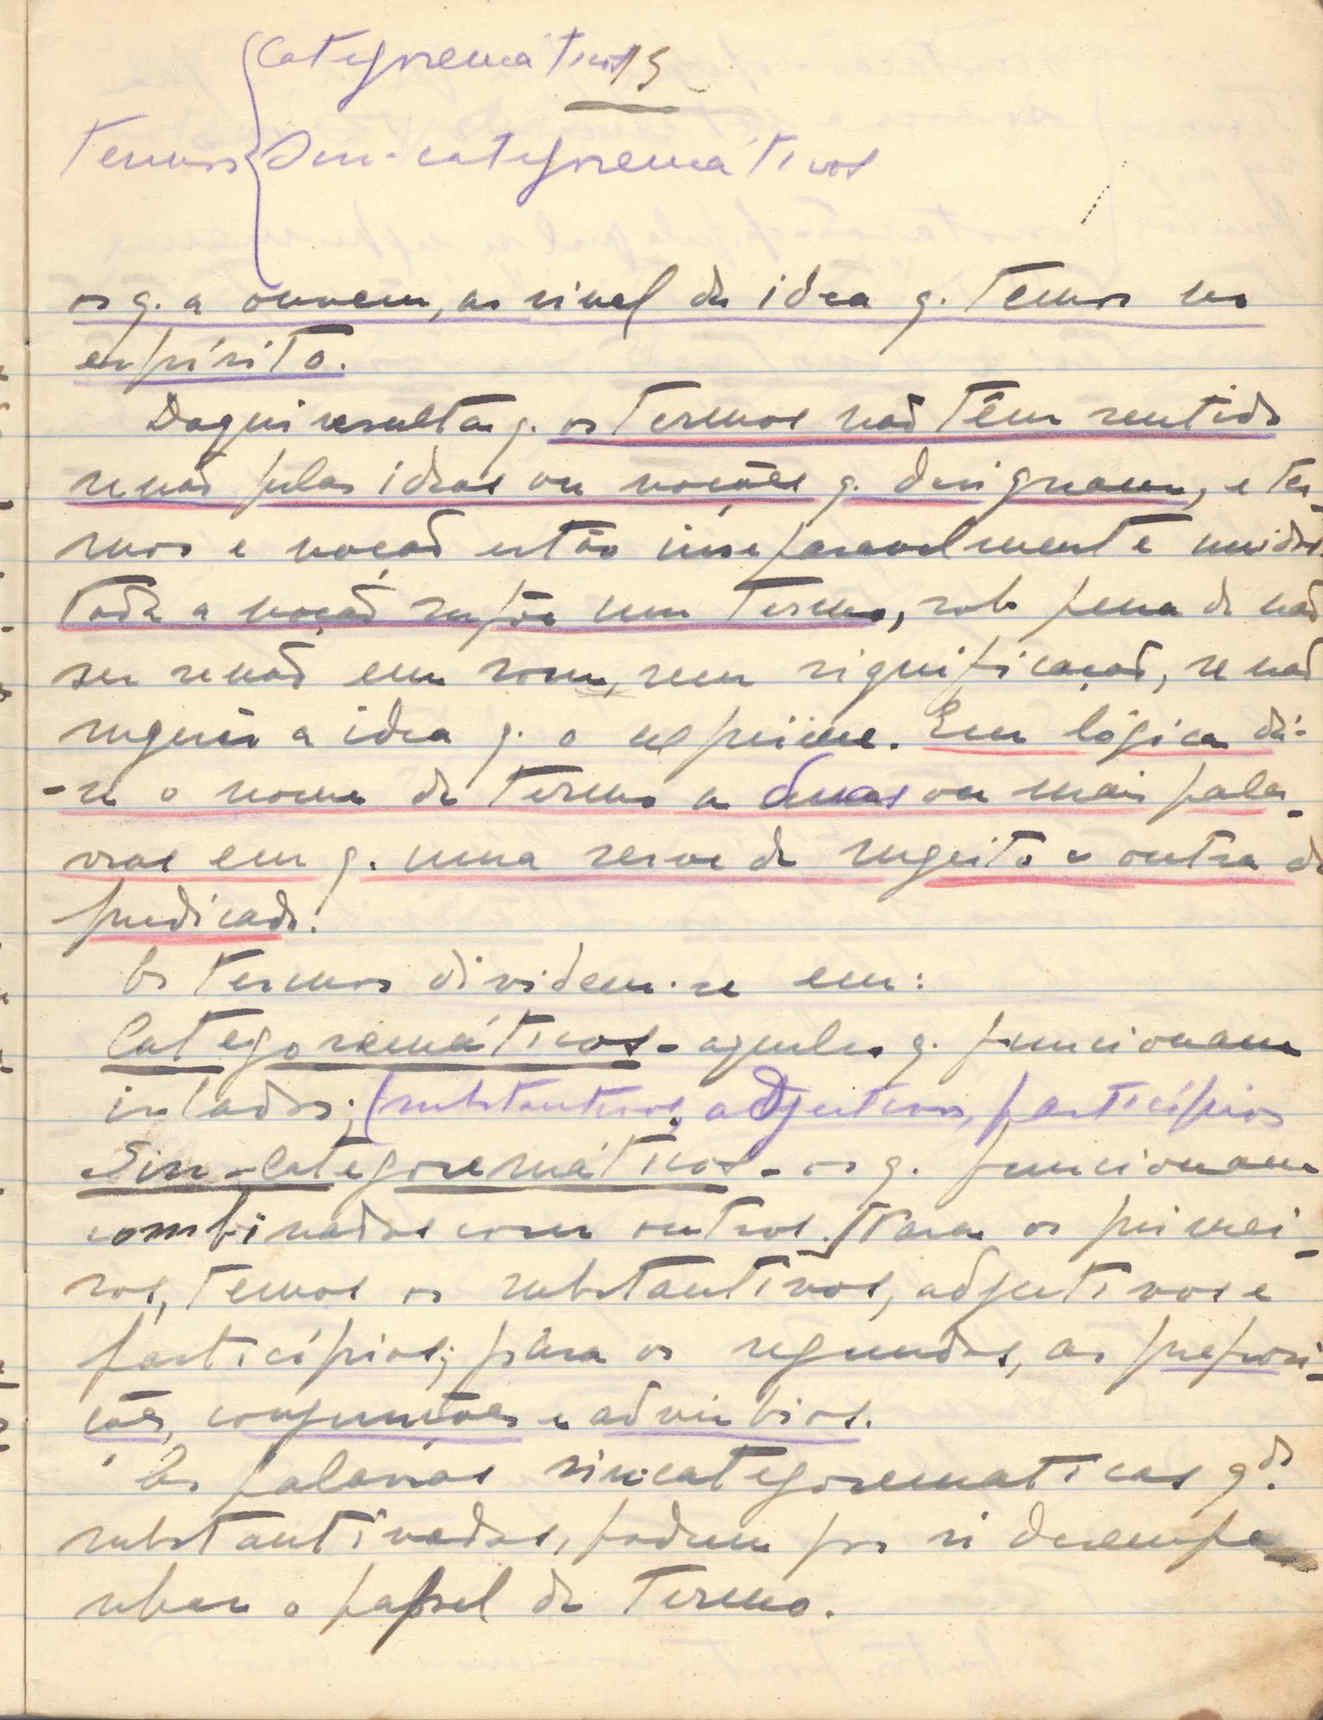 Categoremáticos
15
Termos
Sin-categoremáticos
os q. a ouvem, ao nivel da idea q. temos no
espírito.
Daqui resulta q. os termos não têm sentido
senão pelas ideas ou noções q. designam, e ter-
mos e noção estão inseparavelmente unidos
toda a noção supõe um termo, sob pena de não
ser senão em som, sem significação, se não
sugerir a idea q. o exprime. Em lógica dá-
-se o nome de termo a duas ou mais pala-
vras em q. uma serve de sugeito e outra de
predicado.
Os termos dividem-se em:
Categoremáticos - aqueles q. funcionam
isolados; (substantivos, adjectivos, particípios
Sin-Categoremáticos - os q. funcionam
combinados com outros. Para os primei-
ros, temos os substantivos, adjectivos e
particípios; pára os segundos, as preposi-
ções, conjunções e advérbios.
As palavras sincategorematicas qdo.
substantivadas, podem por si desempe-
nhar o papel de termo.